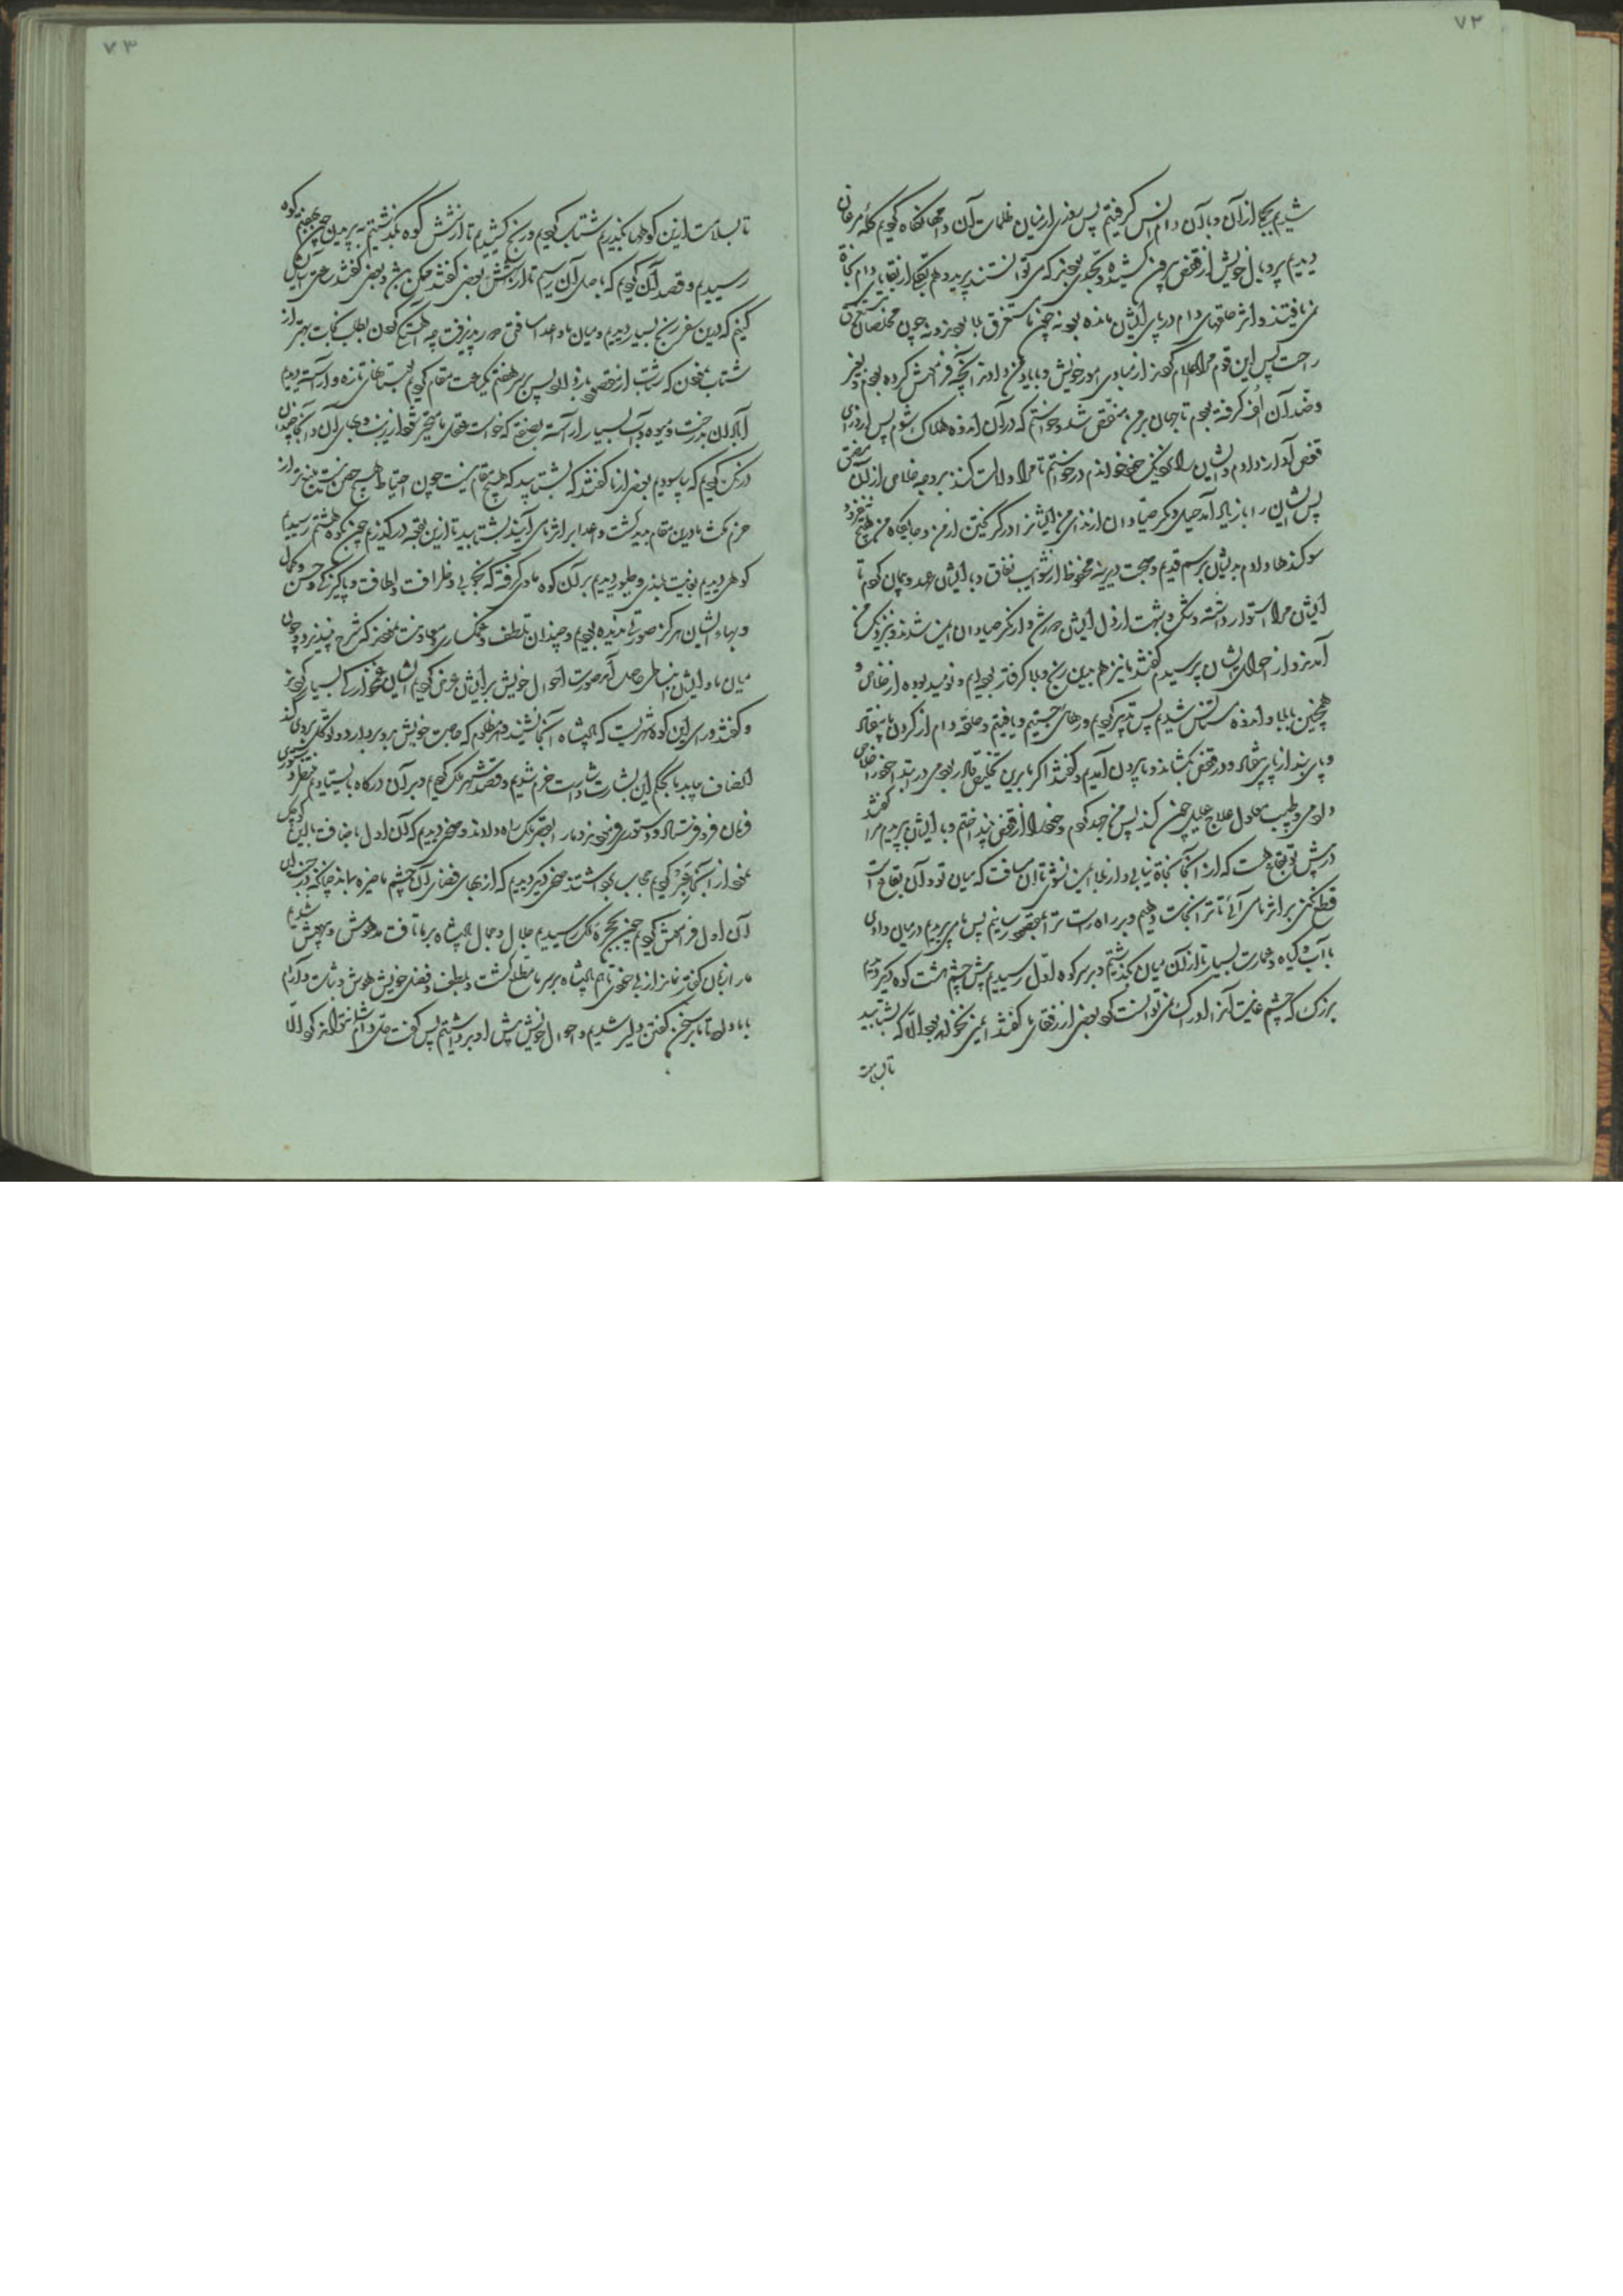 ۷۲
شدیم بحکم از آن و با آن دام انس گرفتیم پس بعضی از میان ظلمات آن دامها نگاه کردیم گله مرغان
دیدیم پر و بال خویش از قفص برون کشیده و بحدی بودند که می توانستند پرید و هم بحکم از بقایای دام نجاة
نمی یافتند و اثر حلقهای دام در پای ایشان مانده بود نه چون ما مستغرق بلا بودند و نه چون مخلصان
راحت پس این قوم مرا اعلام کردند از مبادی امور خویش و با یاد من دادند آنچه فرامش کرده بودم
و ضد آن الف گرفته بودم تا جهان بر من منغص شد و خواستم که در آن اندوه هلاک شوم پس از ورای
قفص آواز دادم و ایشان را بنزدیک خود خواندم درخواستم تا مرا دلالت کنند بر وجه خلاص از آن
پس ایشان را باز یاد آمد حیل و مکر صیادان از ندای من ایشانرا
سوگندها دادم بدیشان برسم قدیم و صحبت دیرینه محفوظ از شوایب نفاق و با ایشان عهد و پیمان کردم تا
ایشان مرا استوار داشتند و شک و شبهت از دل ایشان و از مکر صیادان ایمن شدند و نزدیک من
آمدند و از احوال ایشان پرسیدم گفتند ما نیز همین رنج و بلا گرفتار بودیم و نومید بوده از خلاص و
همچنین با بلا و اندوه مستأنس شدیم پس تدبیر کردیم و رهای جستیم و یافتیم و حلقه دام از گردن ما بیفتاد
و پای بند از پای و در قفص بگشادند و ما برون آمدیم و گفتند اگر ما برین تخلیص قادر بودمی در ابتدا خود را خلاص
دادمی و طبیب معلول علاج علیل چون کند پس من جهد کردم و خود را از قفص بینداختم و با ایشان پریدم مرا گفتند
در پیش تو بقاع هست که از آنجا نجاة نیابی و از بلا ایمن نشوی تا آن مسافت که میان تو و آن بقاع است
قطع نکنی بر اثر ما می آئی تا ترا نجات دهیم و بر راه راست ترا بمقصود رسانیم پس ما پریدیم در میان وادی
با آب و گیاه و عمارت بسیار تا از آن میان بگذشتیم و بر سر کوه اول رسیدیم پیش چشم هشت کوه دیگر دیدیم
بزرگ که چشم غایت آنرا ادراک نمی توانست کرد بعضی از رفقای ما گفتند ایمن نخواهد بود الا که بشتابید
تا بسلامت
۷۳
تا بسلامت ازین کوهها بگذریم شتاب کردیم و رنج کشیدیم تا از شش کوه بگذشتیم به پریدن چون بهفتم کوه
رسیدیم و قصد آن کردیم که باعلی آن رسیم
کنیم که درین سفر رنج بسیار دیدیم و میان ما و اعدا مسافتی پذیرفت چه اکنون بطلب نجات بهتر از
شتاب نمودن که شتاب از مقصود باز دارد پس بر سر هفتم یکساعت مقام کردیم بستانهای تازه و آراسته دیدیم
آبادان بدرخت و میوه و آب بسیار آراسته بصفتی که خواست عقلهای ما متحیر شود از زینت و جمال آن و آنجا چندان
درنگ کردیم که بیاسودیم بعضی از ما گفتند که بشتابید که هیچ مقام نیست چون احتیاط و هیچ حصن نیست بهتر از
حزم مکث ما درین مقام بدید گشت و اعدا بر اثر ما می آیند بشتابید تا ازین بقعه درگذریم چون بکوه هشتم رسیدیم
کوهی دیدیم بغایت بلندی و طیور دیدیم بر آن کوه ماوی گرفته که بخوبی و ظرافت و لطافت و پاکیزگی و حسن و کمال
و بهاء ایشان هرگز صورتی ندیده بودیم و چندان تلطف و غمگساری و معاونت نمودند که شرح نپذیرد و چون
میان ما و ایشان انبساطی حاصل آمد صورت احوال خویش بر ایشان عرض کردیم ایشان غمخوارگی بسیار کردند
و گفتند ورای این کوه شهریست که پادشاه آنجا نشیند و هر مظلوم که حاجت خویش بدو بردارد و توکل بر وی کند
انصاف یابد ما بحکم این بشارت و اشارت خرم شدیم و قصد شهر ملک کردیم و بر آن درگاه بایستادیم منتظر دستوری
فرمان فرو فرستاد و دستوری فرمود و ما را بقصر ملک راه دادند و صحنی دیدیم که آن اول باضافت با این کوچک
نمود از آنجا عبر کردیم حجاب برداشتند صحنی دیگر دیدیم که از بهای فضای آن چشم ما خیره بماند چنانکه
آن اول فرامش کردیم چون بحجره ملک رسیدیم جلال و جمال پادشاه بر ما تافت مدهوش و بیهوش شدیم
ما را زبان گفتار نماند از بیخودی تا هم پادشاه بر سر ما مطلع گشت و بلطف و فضل خویش هوش و ثبات و آرام
با ما داد تا ما بر سخن گفتن دلیر شدیم و احوال خویش پیش او برداشتیم پس گفت حل دام شما نتواند کرد الا